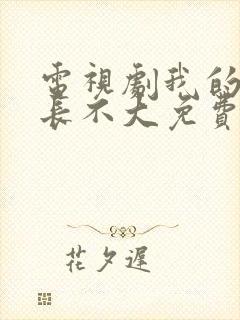 電視劇我的
長不大免費
花夕遲